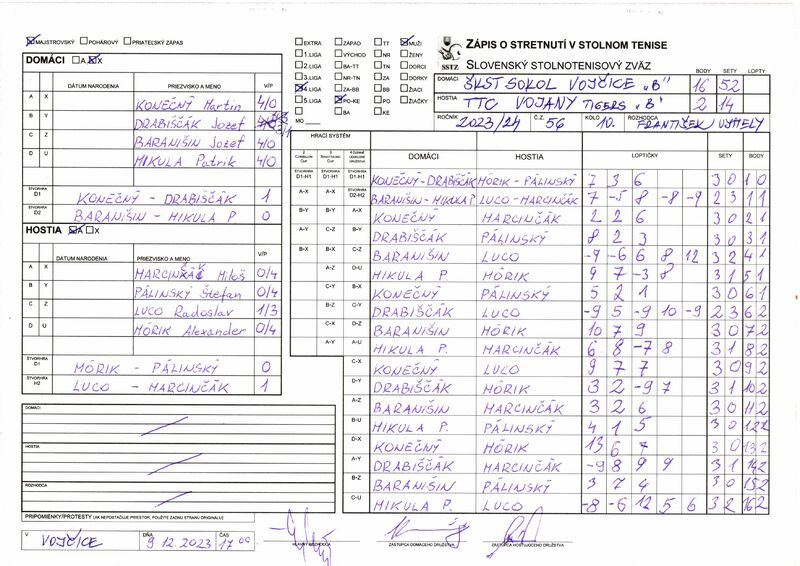 MAJSTROVSKÝ POHÁROVÝ PRIATEĽSKÝ ZÁPAS
DOMÁCI A X
DÁTUM NARODENIA PRIEZVISKO A MENO V/P
A X KONEČNÝ Martin 4/0
B Y DRABIŠČÁK Jozef 3/1
C Z BARANIŠIN Jozef 4/0
D U MIKULA Patrik 4/0
ŠTVORHRA D1 KONEČNÝ - DRABIŠČÁK 1
ŠTVORHRA D2 BARANIŠIN - MIKULA P. 0
HOSTIA A X
DÁTUM NARODENIA PRIEZVISKO A MENO V/P
A X MARCINČÁK Miloš 0/4
B Y PÁLINSKÝ Štefan 0/4
C Z LUCO Radoslav 1/3
D U MÓRIK Alexander 0/4
ŠTVORHRA D1 MÓRIK - PÁLINSKÝ 0
ŠTVORHRA H2 LUCO - MARCINČÁK 1
DOMÁCI
HOSTIA
ROZHODCA
PRIPOMIENKY/PROTESTY (AK NEPOSTAČUJE PRIESTOR, POUŽITE ZADNÚ STRANU ORIGINÁLU)
V VOJČICE DŇA 9.12.2023 ČAS 17 00
HLAVNÝ ROZHODCA ZÁSTUPCA DOMÁCEHO DRUŽSTVA ZÁSTUPCA HOSŤUJÚCEHO DRUŽSTVA
EXTRA ZÁPAD TT MUŽI
1.LIGA VÝCHOD NR ŽENY
2.LIGA BA-TT TN DORCI
3.LIGA NR-TN ZA DORKY
4.LIGA ZA-BB BB ŽIACI
5.LIGA PO-KE PO ŽIAČKY
MO BA KE
SSTZ
ZÁPIS O STRETNUTÍ V STOLNOM TENISE
SLOVENSKÝ STOLNOTENISOVÝ ZVÄZ
BODY SETY LOPTY
DOMÁCI ŠKST SOKOL VOJČICE "B" 16 52
HOSTIA TTC VOJANY TIGERS "B" 2 14
ROČNÍK 2023/24 Č.Z. 56 KOLO 10. ROZHODCA FRANTIŠEK VYHELY
HRACÍ SYSTÉM
DOMÁCI HOSTIA LOPTIČKY SETY BODY
ŠTVORHRA D1-H1 ŠTVORHRA D1-H1 ŠTVORHRA D1-H1 KONEČNÝ - DRABIŠČÁK MÓRIK - PÁLINSKÝ 7 3 6 3 0 1 0
A-X A-X ŠTVORHRA D2-H2 BARANIŠIN - MIKULA P. LUCO - MARCINČÁK 7 -5 8 -8 -9 2 3 1 1
B-Y B-Y A-X KONEČNÝ MARCINČÁK 2 2 6 3 0 2 1
A-Y C-Z B-Y DRABIŠČÁK PÁLINSKÝ 8 2 3 3 0 3 1
B-X B-X C-Z BARANIŠIN LUCO -9 -6 6 8 12 3 2 4 1
A-Z D-U MIKULA P. MÓRIK 9 7 -3 8 3 1 5 1
C-Y B-X KONEČNÝ PÁLINSKÝ 5 2 1 3 0 6 1
B-Z C-Y DRABIŠČÁK LUCO -9 5 -9 10 -9 2 3 6 2
C-X D-Z BARANIŠIN MÓRIK 10 7 9 3 0 7 2
A-Y A-U MIKULA P. MARCINČÁK 6 8 -7 8 3 1 8 2
C-X KONEČNÝ LUCO 9 7 7 3 0 9 2
D-Y DRABIŠČÁK MÓRIK 3 2 -9 7 3 1 10 2
A-Z BARANIŠIN MARCINČÁK 3 2 6 3 0 11 2
B-U MIKULA P. PÁLINSKÝ 4 1 5 3 0 12 2
D-X KONEČNÝ MÓRIK 13 6 7 3 0 13 2
A-Y DRABIŠČÁK MARCINČÁK -9 8 9 9 3 1 14 2
B-Z BARANIŠIN PÁLINSKÝ 3 7 4 3 0 15 2
C-U MIKULA P. LUCO -8 -6 12 5 6 3 2 16 2